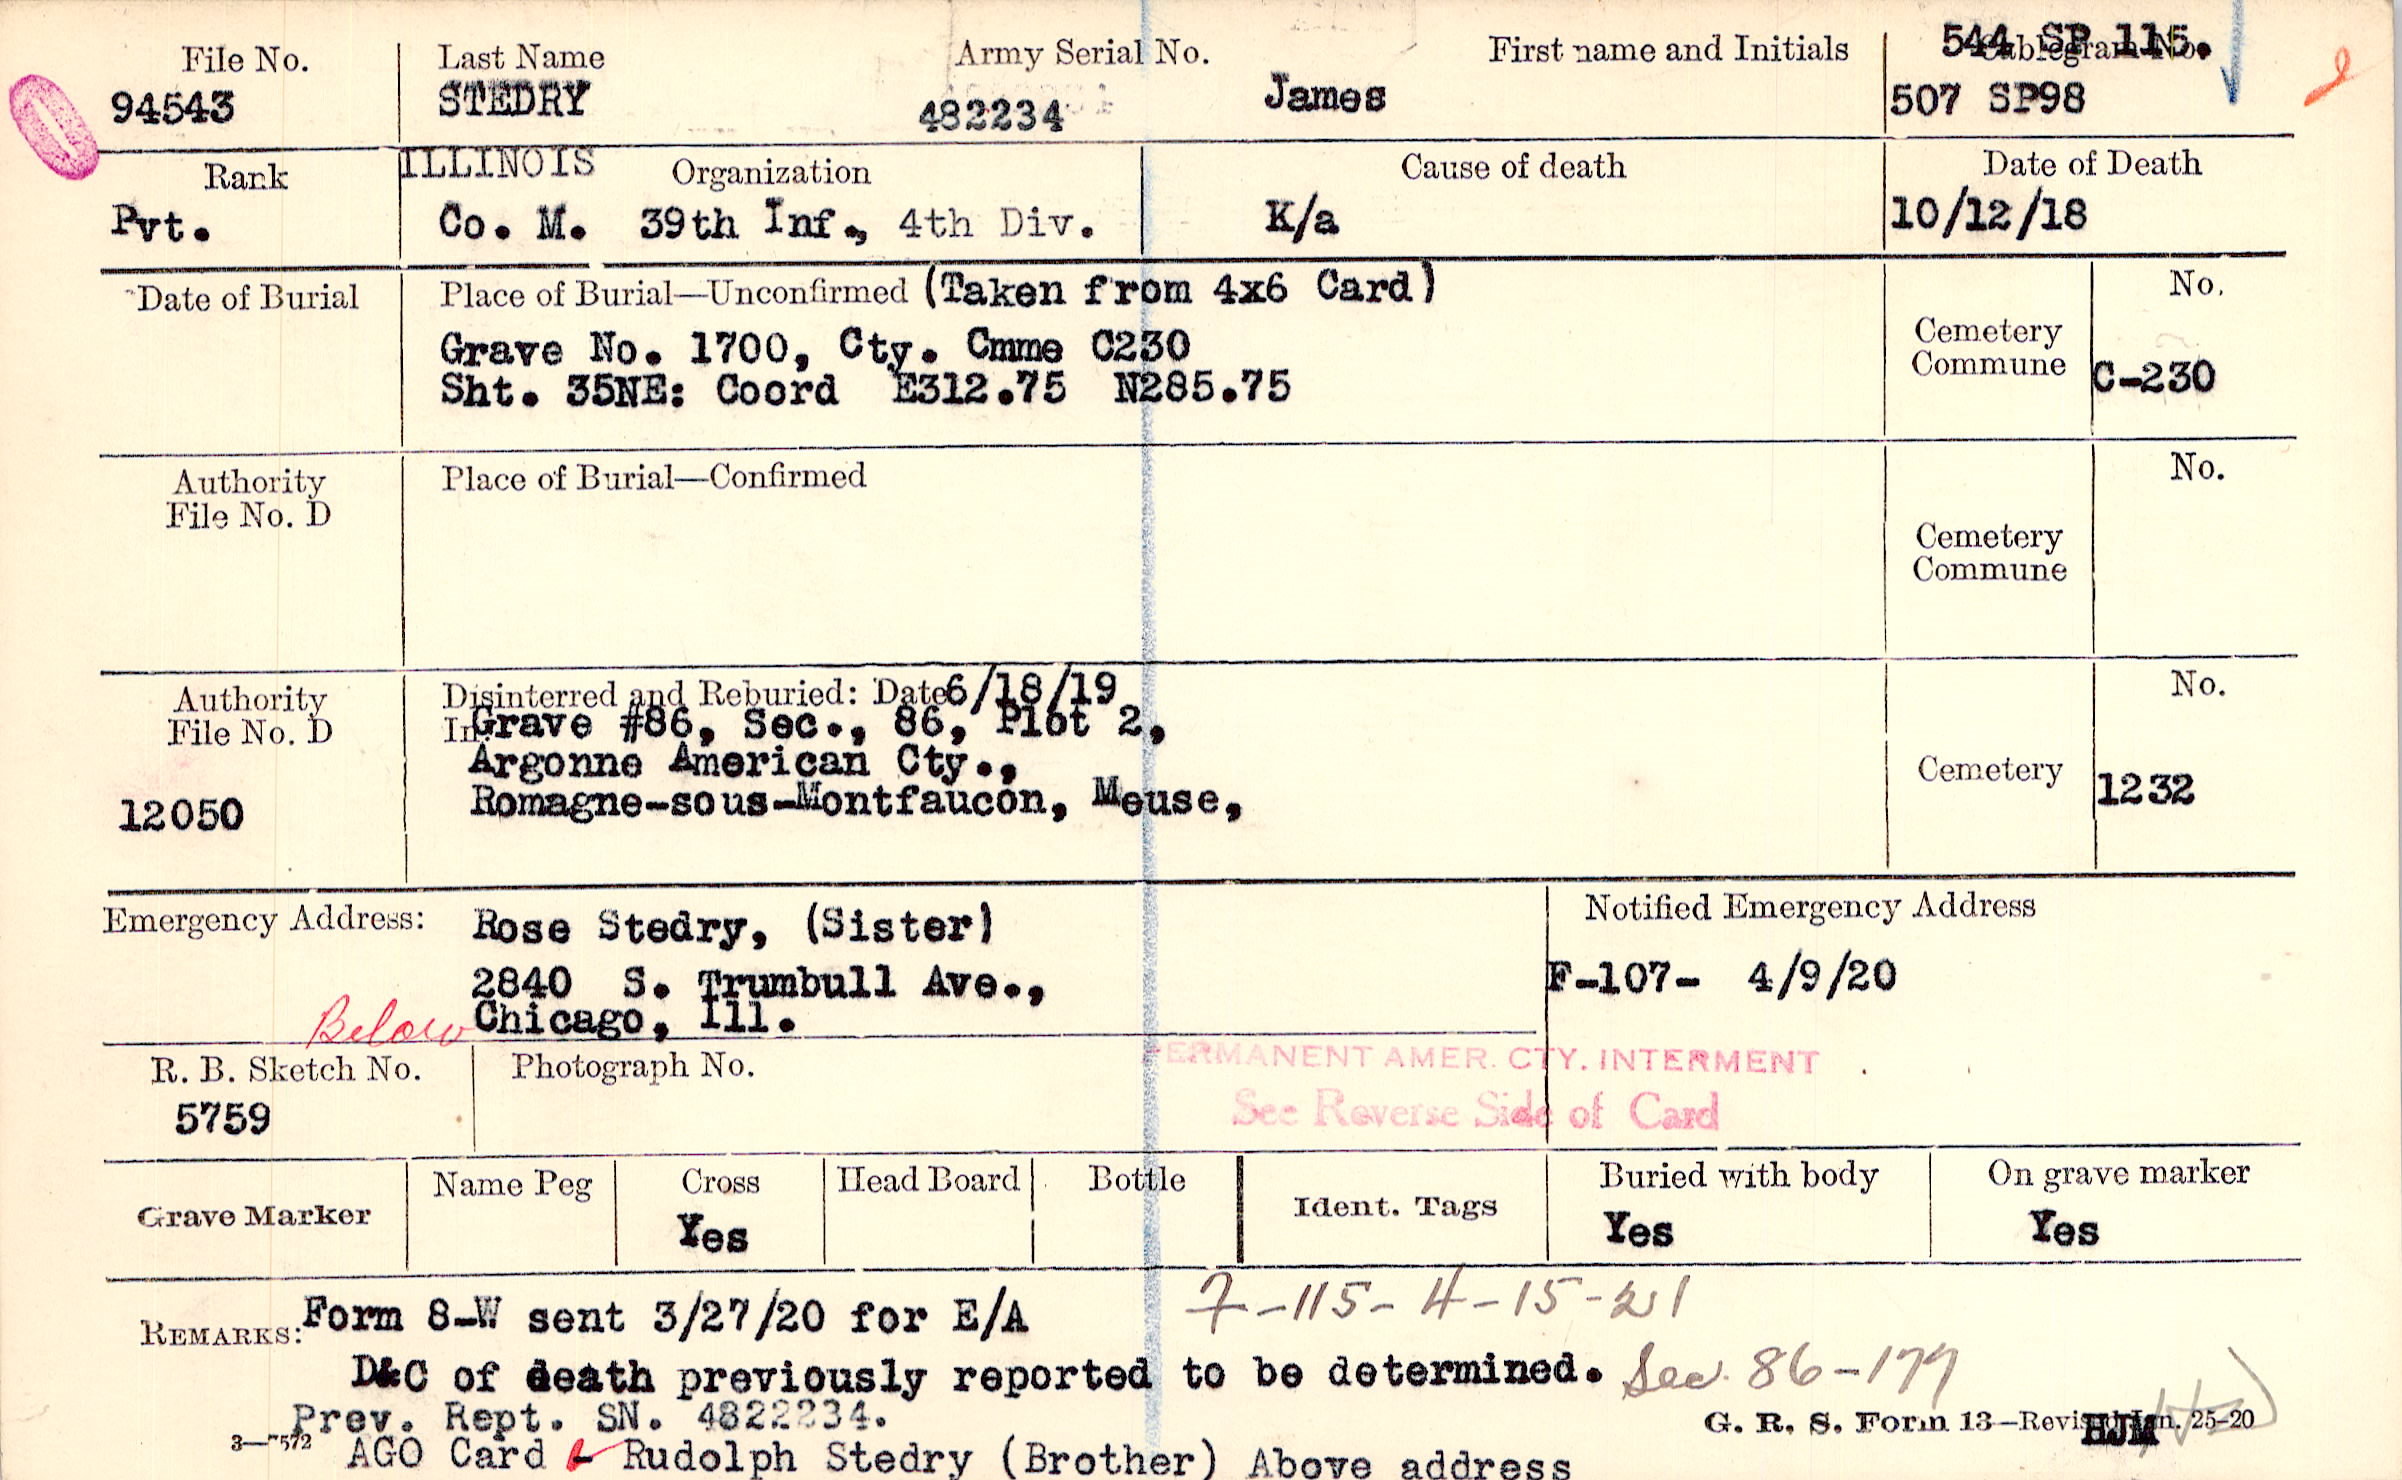 File No. Last Name Army Serial No. First name and Initials Cablegram No.
544 SP 115.
94543 STEDRY 482234 James 507 SP98
Rank ILLINOIS Organization Cause of death Date of Death
Pvt. Co. M. 39th Inf., 4th Div. K/a 10/12/18
Date of Burial Place of Burial—Unconfirmed (Taken from 4x6 Card) No.
Grave No. 1700, Cty. Cmme C230
Cemetery
Commune C-230
Sht. 35NE: Coord E312.75 N285.75
Authority Place of Burial—Confirmed No.
File No. D
Cemetery
Commune
Authority Disinterred and Reburied: Date 6/18/19 No.
File No. D In Grave #86, Sec., 86, Plot 2,
Argonne American Cty., Cemetery 1232
12050 Romagne-sous-Montfaucon, Meuse,
Emergency Address: Rose Stedry, (Sister) Notified Emergency Address
2840 S. Trumbull Ave., F-107- 4/9/20
Below Chicago, Ill.
R. B. Sketch No. Photograph No. PERMANENT AMER. CTY. INTERMENT
5759 See Reverse Side of Card
Grave Marker Name Peg Cross Head Board Bottle Ident. Tags Buried with body On grave marker
Yes Yes Yes
REMARKS: Form 8-W sent 3/27/20 for E/A 7-115-4-15-21
D&C of death previously reported to be determined. Sec. 86-177
Prev. Rept. SN. 4822234. G. R. S. Form 13—Revised Jan. 25-20 HJM
3—7572 AGO Card Rudolph Stedry (Brother) Above address